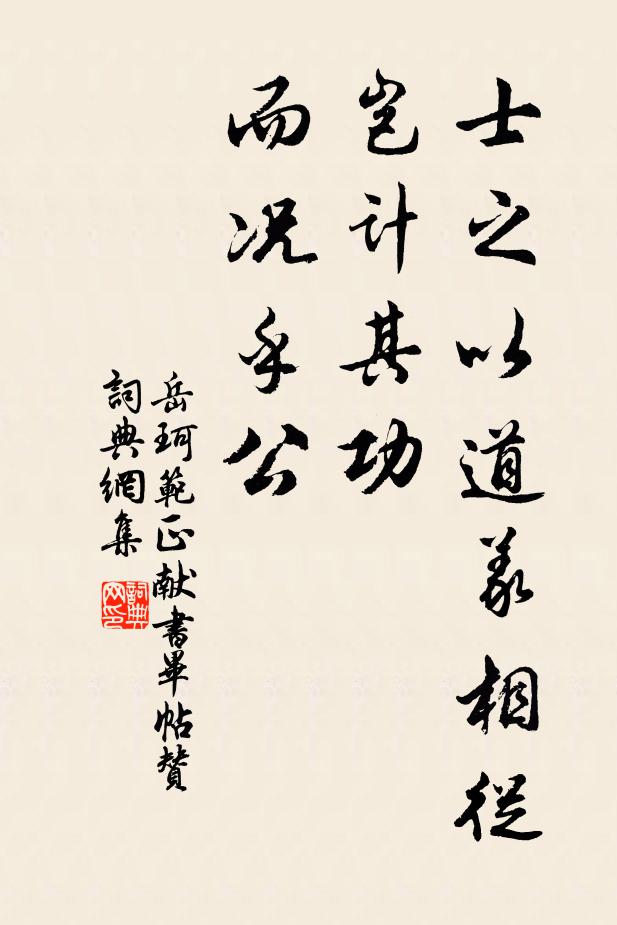 士之以道義相從
豈計其功
而况乎公
岳珂範正献書畢帖贊
詞典網集
詞典网印